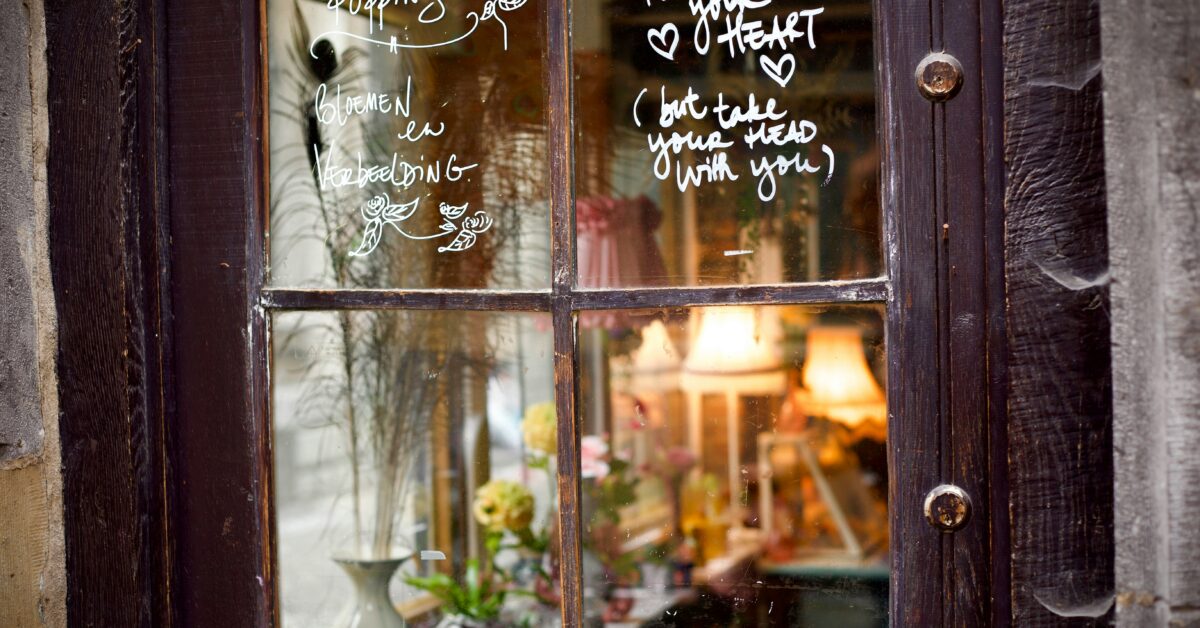 Popping
Bloemen
en
Verbeelding.
your
HEART
(but take
your HEAD
with you)